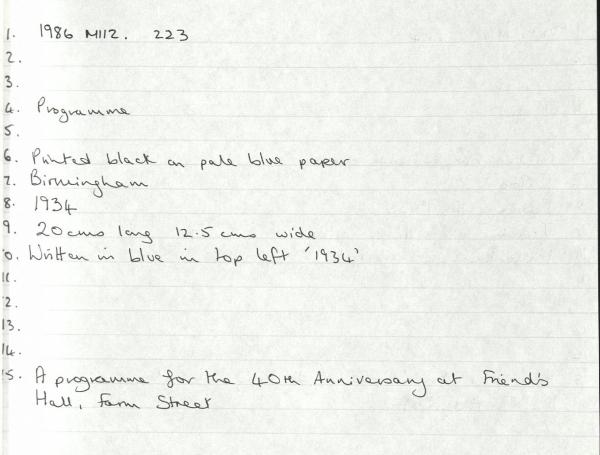 1. 1986 M112. 223
2.
3.
4. Programme
5.
6. Printed black on pale blue paper
7. Birmingham
8. 1934
9. 20cms long 12.5cms wide
0. Written in blue in top left '1934'
11.
12.
13.
14.
15. A programme for the 40th Anniversary at Friend's
Hall, Farm Street